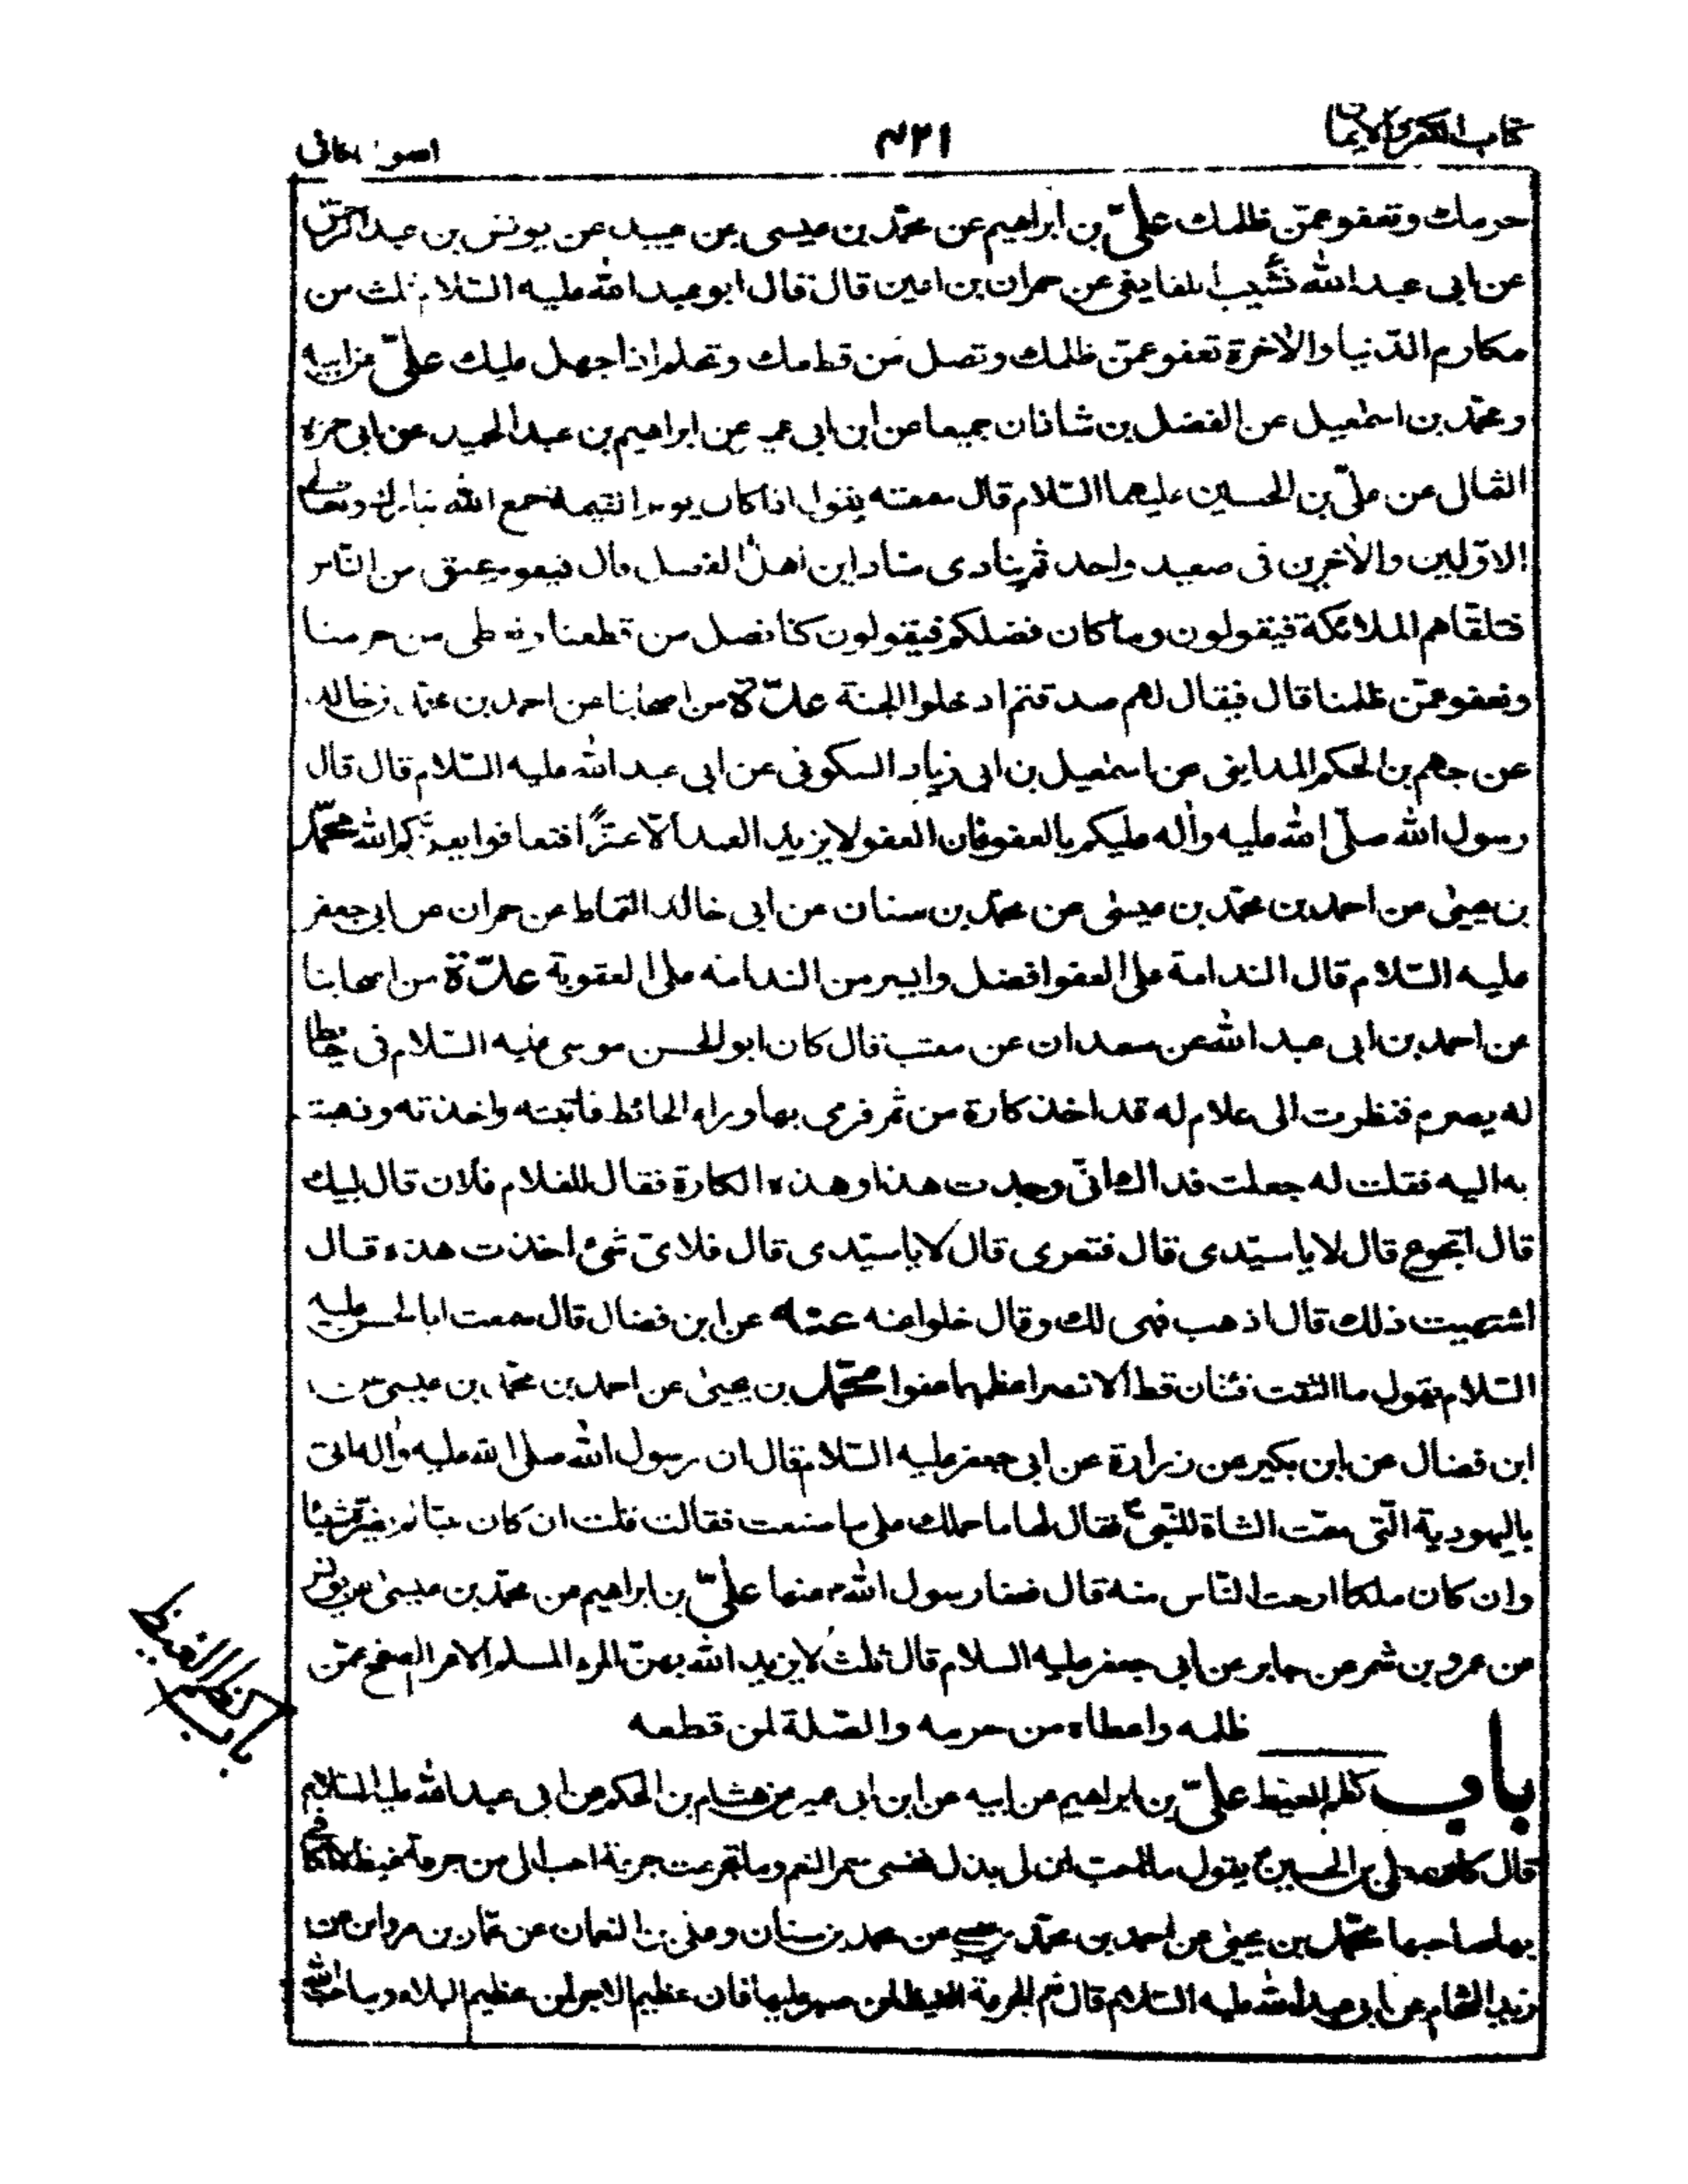 كتاب الكفر والايمان
٤٢١
اصول كافى
حرمك وتعفو عمّن ظلمك علىّ بن ابراهيم عن محمّد بن عيسى بن عبيد عن يونس بن عبد الرحمن
عن ابى عبد الله نشيب اللفايفى عن حمران بن اعين قال قال ابو عبد الله عليه السّلام ثلث من
مكارم الدّنيا والاخرة تعفو عمّن ظلمك وتصل من قطعك وتحلم اذا جهل عليك علىّ عن ابيه
ومحمّد بن اسمعيل عن الفضل بن شاذان جميعا عن ابن ابى عمير عن ابراهيم بن عبد الحميد عن ابى حمزه
الثمالى عن علىّ بن الحسين عليهما السّلام قال سمعته يقول اذا كان يوم القيمة جمع الله تبارك وتعالى
الاوّلين والاخرين فى صعيد واحد ثم ينادى مناد اين اهل الفضل قال فيقوم عنق من النّاس
فتلقّاهم الملائكة فيقولون وما كان فضلكم فيقولون كنّا نصل من قطعنا ونعطى من حرمنا
ونعفو عمّن ظلمنا قال فيقال لهم صدقتم ادخلوا الجنة عدّة من اصحابنا عن احمد بن محمّد بن خالد
عن جهم بن الحكم المداينى عن اسمعيل بن ابى زياد السكونى عن ابى عبد الله عليه السّلام قال قال
رسول الله صلّى الله عليه واله عليكم بالعفو فان العفو لا يزيد العبد الّا عزّا فتعافوا يعزّكم الله محمّد
بن يحيى عن احمد بن محمّد بن عيسى عن محمّد بن سنان عن ابى خالد القمّاط عن حمران عن ابى جعفر
عليه السّلام قال الندامة على العفو افضل وايسر من الندامة على العقوبة عدّة من اصحابنا
عن احمد بن ابى عبد الله عن سعدان عن معتب قال كان ابو الحسن موسى عليه السّلام فى حايط
له يصرم فنظرت الى غلام له قد اخذ كارة من تمر فرمى بها وراء الحائط فاتيته واخذته وذهبت
به اليه فقلت له جعلت فداك انّى وجدت هذا وهذه الكارة فقال للغلام فلان قال لبيك
قال اتجوع قال لا يا سيّدى قال فتعرى قال لا يا سيّدى قال فلاىّ شئ اخذت هذه قال
اشتهيت ذلك قال اذهب فهى لك وقال خلوا عنه عنه عن ابن فضال قال سمعت ابا الحسن عليه
السّلام يقول ما التقت فئتان قط الا نصر اعظمهما عفوا محمّد بن يحيى عن احمد بن محمّد بن عيسى عن
ابن فضال عن ابن بكير عن زرارة عن ابى جعفر عليه السّلام قال ان رسول الله صلى الله عليه واله اتى
باليهودية الّتى سمّت الشاة للنّبىّ فقال لها ما حملك على ما صنعت فقالت قلت ان كان نبيّا لم يضرّه شيئا
وان كان ملكا ارحت النّاس منه قال فعفا رسول الله عنها علىّ بن ابراهيم عن محمّد بن عيسى عن يونس
عن عمرو بن شمر عن جابر عن ابى جعفر عليه السلام قال ثلث لا يزيد الله بهنّ المرء المسلم الا عزا الصفح عمّن
ظلمه واعطاء من حرمه والصّلة لمن قطعه
باب كظم الغيظ علىّ بن ابراهيم عن ابيه عن ابن ابى عمير عن هشام بن الحكم عن ابى عبد الله عليه السّلام
قال كان على بن الحسين يقول ما احب ان لى بذل نفسى حمر النعم وما تجرعت جرعة احب الى من جرعة غيظ لا اكافى
بها صاحبها محمّد بن يحيى عن احمد بن محمّد بن عيسى عن محمد بن سنان وعلى بن النعمان عن عمّار بن مروان عن
زيد الشحام عن ابى عبد الله عليه السّلام قال نعم الجرعة الغيظ لمن صبر عليها فان عظيم الاجر لمن عظيم البلاء وما احبّ الله
باب كظم الغيظ